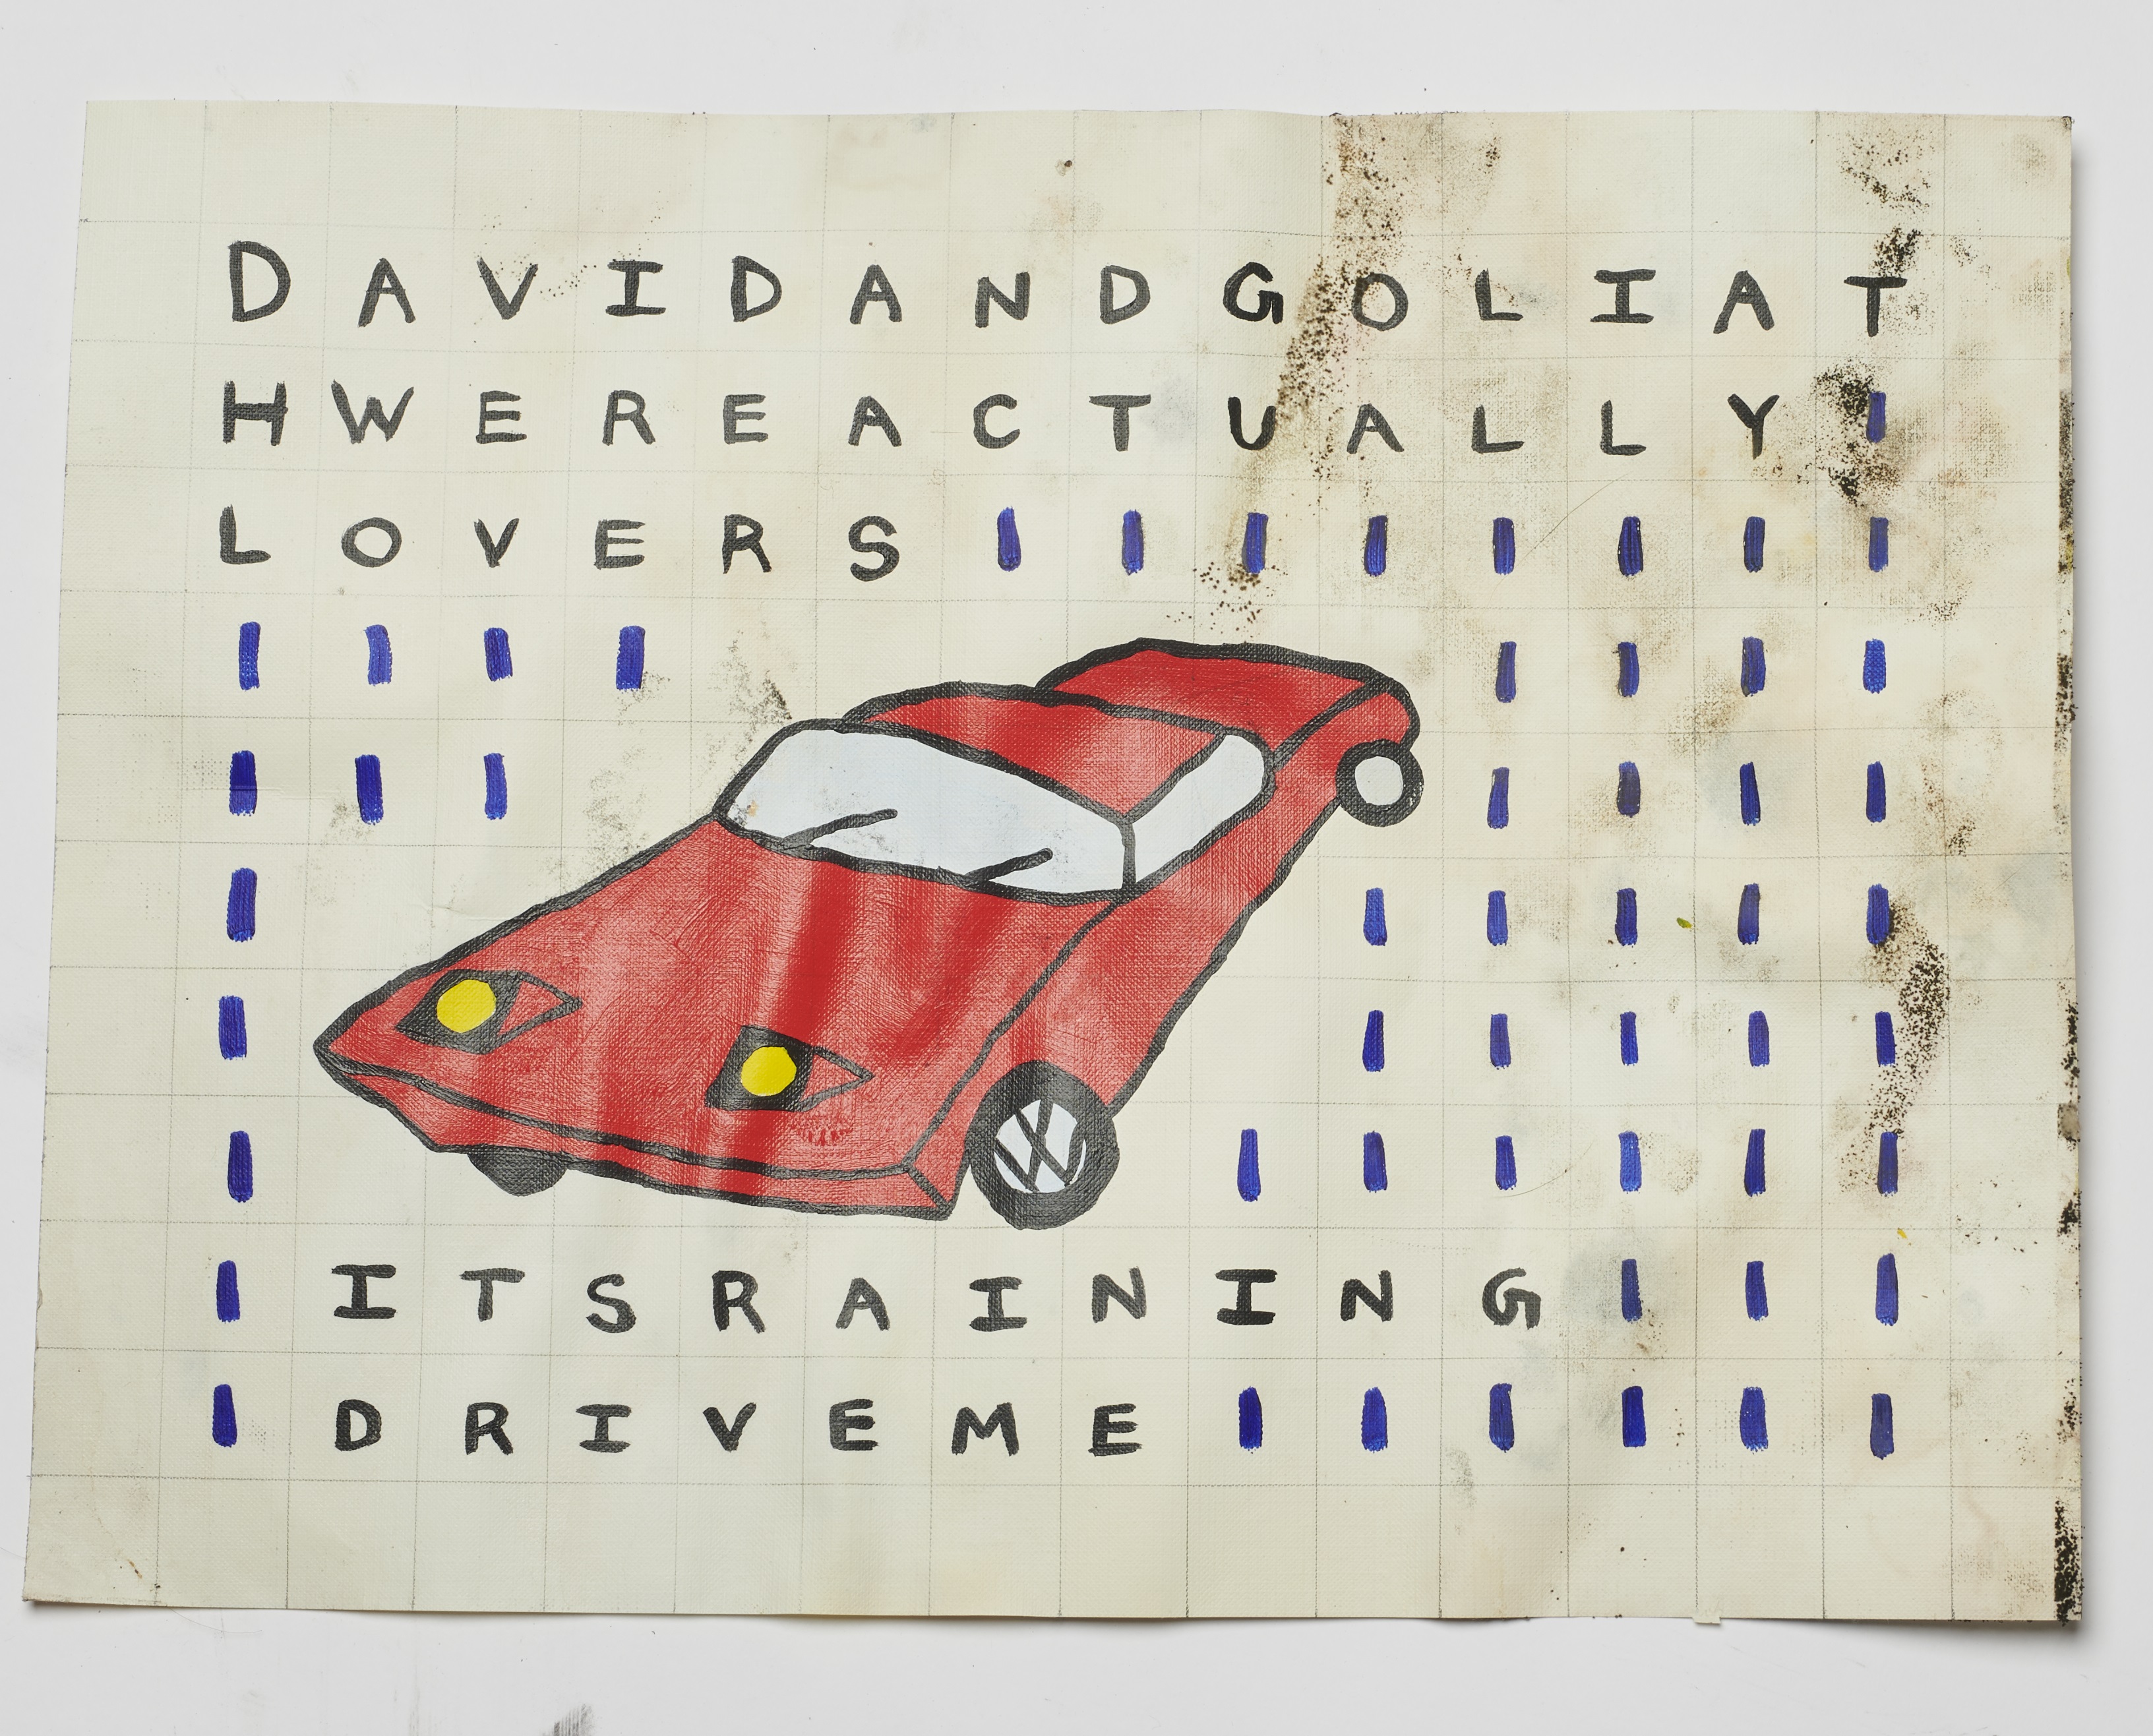 DAVIDANDGOLIAT
HWEREACTUALLY
LOVERS
VW
ITSRAINING
DRIVEME